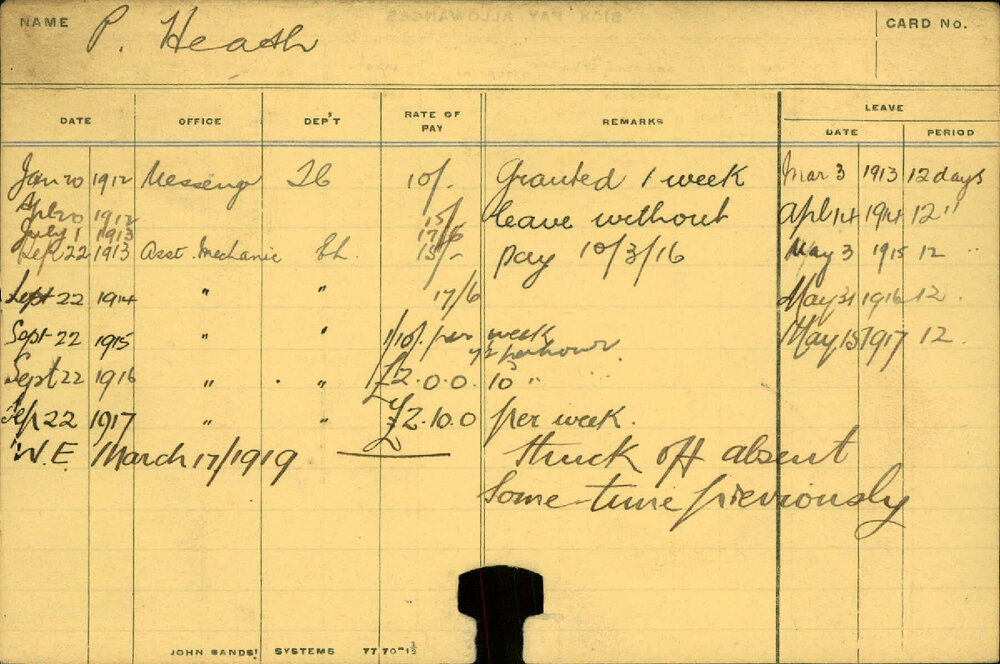 NAME P. Heath CARD No.
LEAVE
DATE OFFICE DEP'T RATE OF PAY REMARKS DATE PERIOD
Jan 20 1912 Messenger 10/- Granted 1 week Mar 3 1913 12 days
Apl 20 1912 15/ leave without Apl 14 1914 12 "
July 1 1913 17/6
Sept 22 1913 Asst. Mechanic 15/- pay 10/3/16 May 3 1915 12 "
Sept 22 1914 " " 17/6 May 31 1916 12 .
Sept 22 1915 " " 1/10/. per week May 15 1917 12 .
per hour
Sept 22 1916 " " £2.0.0. 10 "
Sep 22 1917 " " £2.10.0 per week.
W.E. March 17/1919 Struck off absent
Some time previously
JOHN SANDS' SYSTEMS 77 70